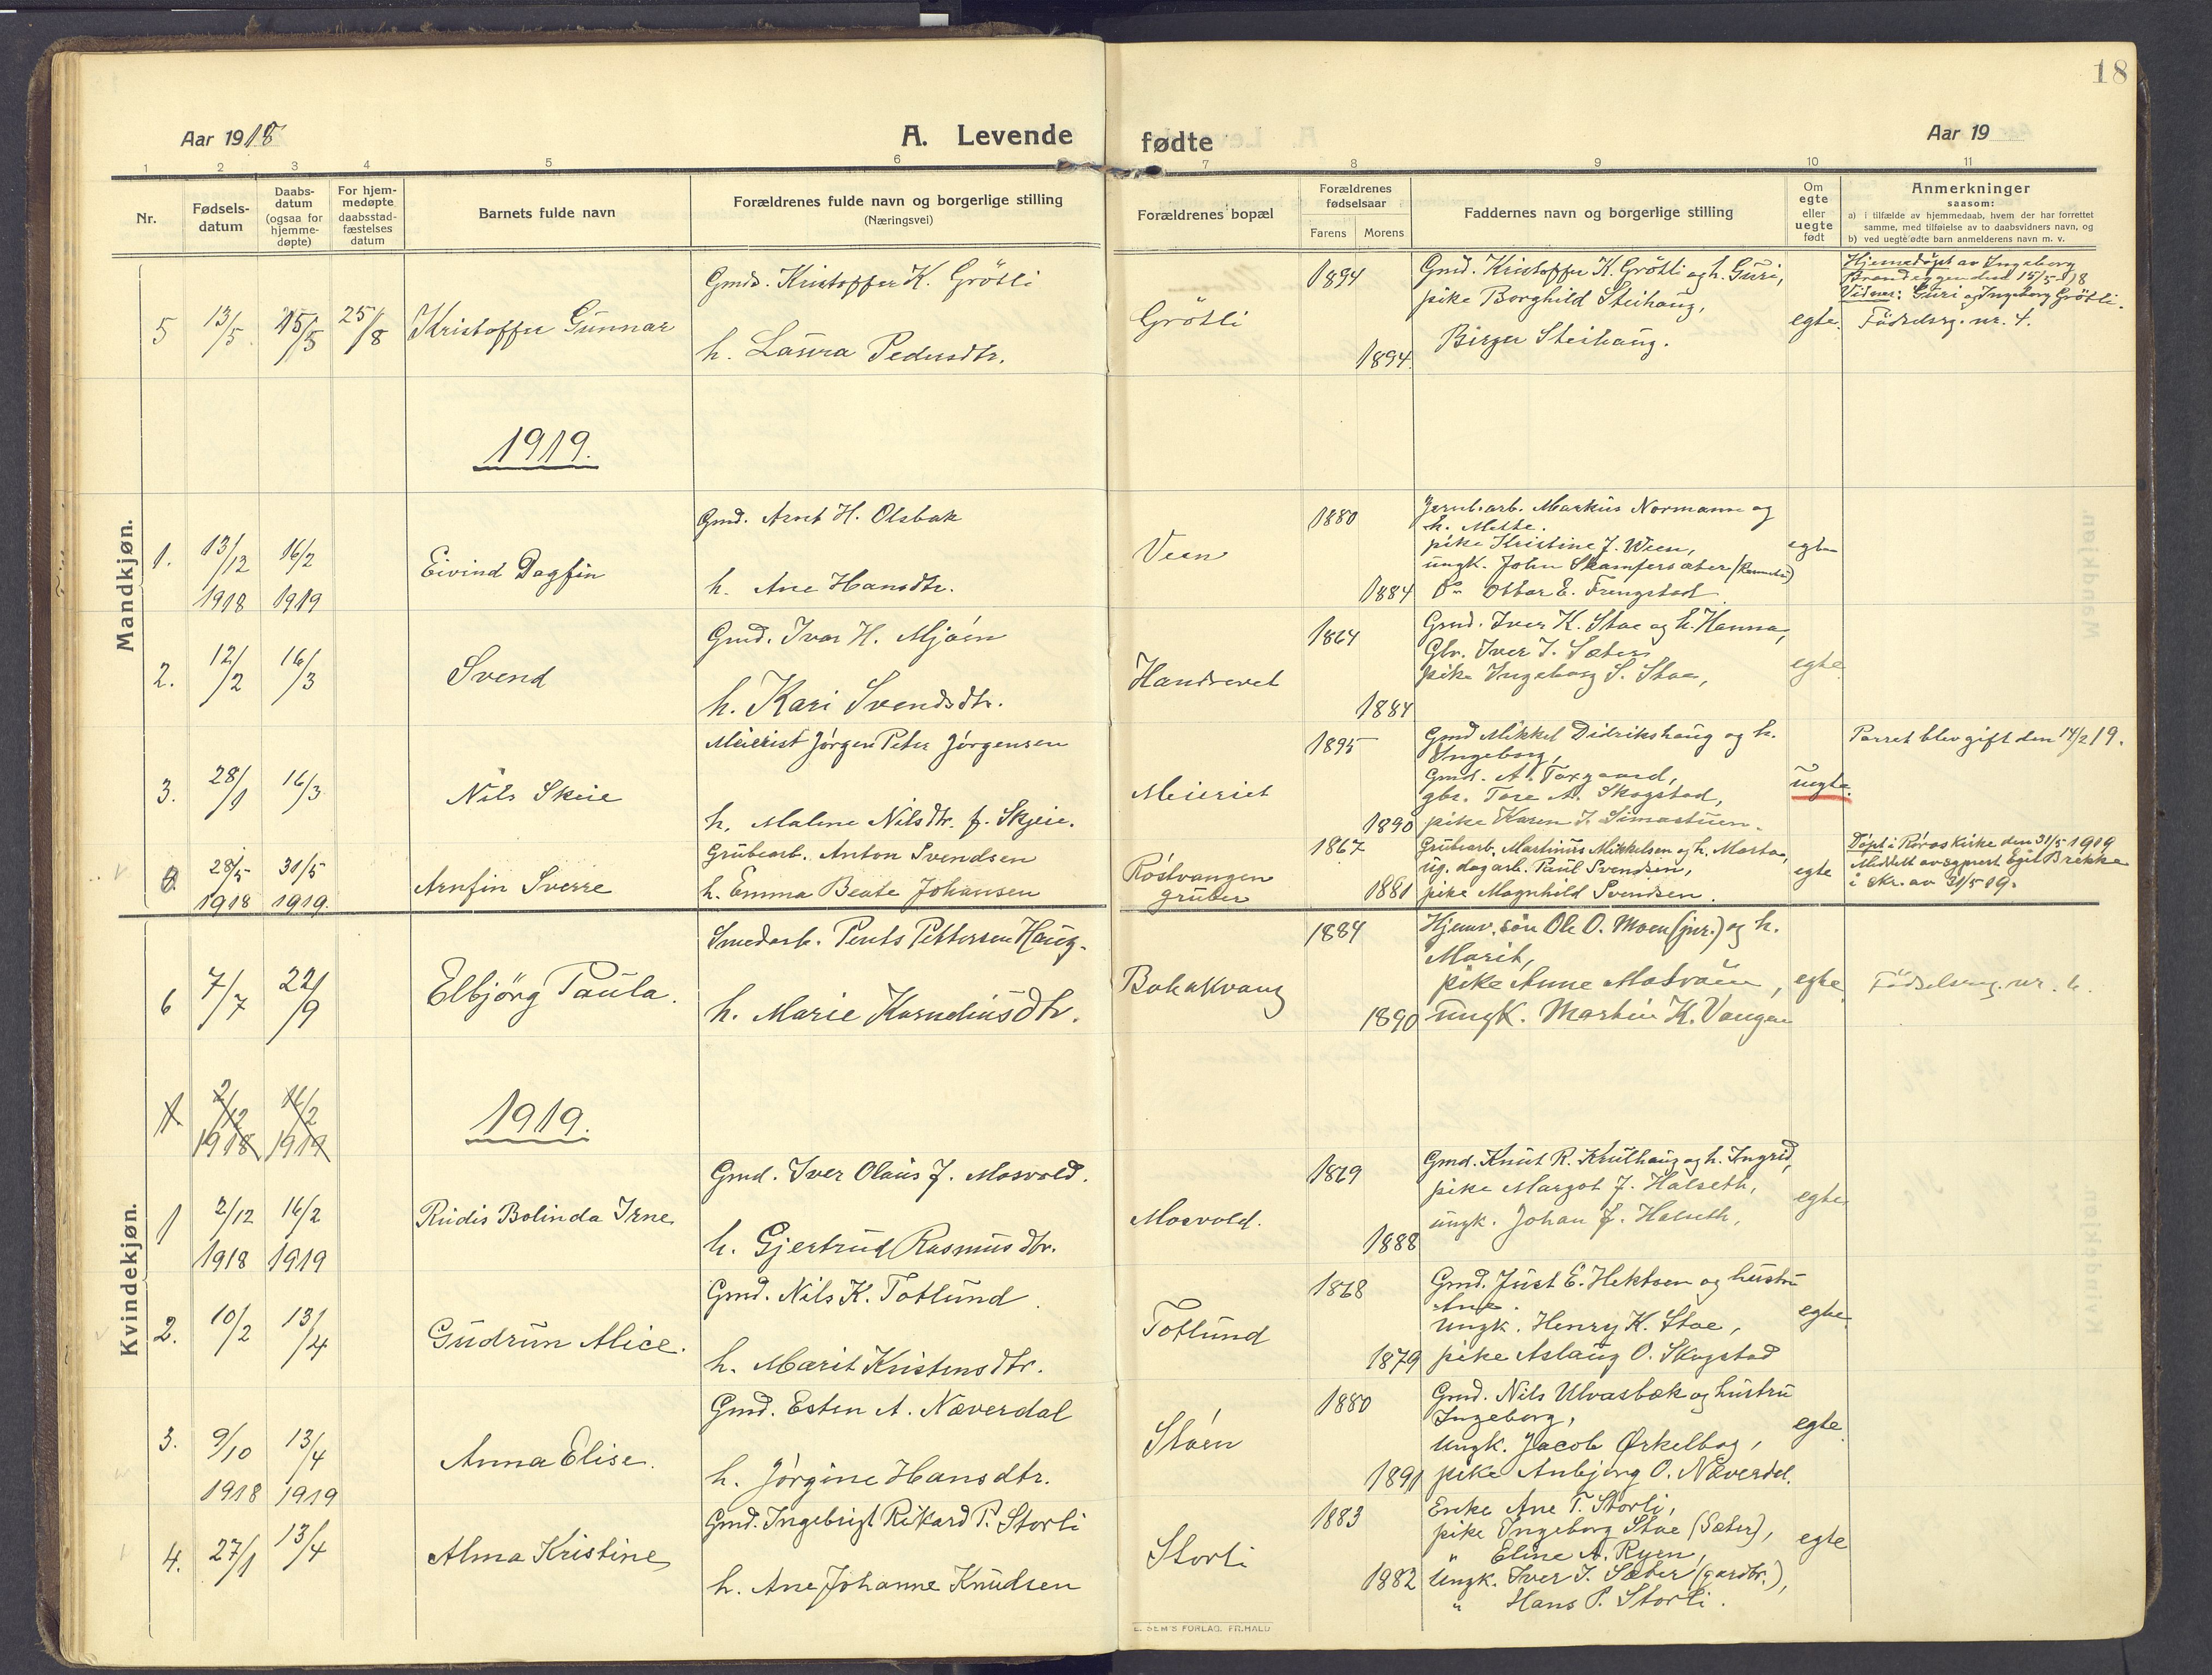 18
Aar 1918
A. Levende
fødte
Aar 19
1 2 3 4 5 6 7 8 9 10 11
Nr.
Fødsels-
datum
Daabs-
datum
(ogsaa for
hjemme-
døpte)
For hjem-
medøpte
daabsstad-
fæstelses
datum
Barnets fulde navn
Forældrenes fulde navn og borgerlige stilling
(Næringsvei)
Forældrenes bopæl
Forældrenes
fødselsaar
Farens Morens
Faddernes navn og borgerlige stilling
Om
egte
eller
uegte
født
Anmerkninger
saasom:
a) i tilfælde av hjemmedaab, hvem der har forrettet
samme, med tilføielse av to daabsvidners navn, og
b) ved uegte fødte barn anmelderens navn m. v.
Mandkjøn.
5 13/5 15/5 25/8 Kristoffer Gunnar
Gmd. Kristoffer K. Grötli
h. Laura Pedersdtr.
Grötli
1894
1894
Gmd. Kristoffer K. Grötli og h. Guri,
pike Borghild Steihaug,
Birger Steihaug.
egte.
Hjemedöpt av Ingeborg
Brandeggen den 15/5-18
Vidner: Guri og Ingeborg Grötli.
Födselsrg. nr. 4.
1919.
1. 13/12 1918 16/2 1919 Eivind Dagfin
Gmd. Arnt H. Olsbak
h. Ane Hansdtr.
Veen
1880
1884
Jernb.arb. Markus Normann og
h. Mette.
pike Kristine J. Ween,
ungk. John Skamfersæter
Do Ottar E. Frengstad
egte
2. 12/2 16/3 Svend
Gmd. Ivar H. Mjoen
h. Kari Svendsdtr.
Handrevet
1864
1884
Gmd. Iver K. Stoe og h. Hanna,
Gbr. Iver I. Sæter
pike Ingeborg S. Stoe,
egte
3. 28/1 16/3 Nils Skeie
Meierist Jørgen Peter Jørgensen
h. Malene Nilsdtr. f. Skjeie.
Meieriet
1895
1890
Gmd Mikkel Didrikshaug og h.
Ingeborg,
Gmd. A. Torgaard,
gbr. Tore A. Skogstad,
pike Karen J. Simastuen.
uegte.
Parret blev gift den 14/2 19.
28/5 1918 31/5 1919. Arnfin Sverre
Grubearb. Anton Svendsen
h. Emma Beate Johansen
Röstvangen
gruber
1867
1881
Grubearb. Martinus Mikkelsen og h. Marta,
ug. dagarb. Paul Svendsen,
pike Magnhild Svendsen.
egte
Döpt i Röros kirke den 31/5 1919
Meddelt av sogneprest Egil Brekke
i skr. av 31/5 19.
Kvindekjøn.
6 7/7 22/9 Elbjörg Paula.
Smedarb. Pents Pettersen Haug.
h. Marie Korneliusdtr.
Bakakvang
1884
1890
Hjemv. sön Ole O. Moen (jnr.) og h.
Marit,
pike Anne Mosvold,
ungk. Martin K. Vangen
egte
Födselsreg. nr. 6.
1 2/12 1918 16/2 1919
1919.
1 2/12 1918 16/2 1919 Rudis Bolinda Irne
Gmd. Iver Olaus J. Mosvold.
h. Gjertrud Rasmusdtr.
Mosvold.
1879
1888
Gmd. Knut R. Krulhaug og h. Ingrid,
pike Margot J. Halseth,
ungk. Johan J. Halseth,
egte
2. 10/2 13/4 Gudrun Alice.
Gmd. Nils K. Totlund.
h. Marit Kristensdtr.
Totlund
1868
1879
Gmd. Just E. Hektoen og hustru
Ane.
ungk. Henry K. Stoe,
pike Aslaug O. Skogstad
egte.
3. 9/10 1918 13/4 1919 Anna Elise.
Gmd. Esten A. Næverdal
h. Jörgine Hansdtr.
Stoen
1880
1891
Gmd. Nils Ulvasbæk og hustru
Ingeborg,
Ungk. Jacob Ørkelbog,
pike Anbjørg O. Næverdal.
egte
4. 27/1 13/4 Alma Kristine
Gmd. Ingebrigt Rikard P. Storli
h. Ane Johanne Knudsen
Storli
1883
1882
Enke Ane T. Storli,
pike Ingeborg Stoe (Sæter),
" Eline A. Ryen,
Ungk. Iver I. Sæter (gardbr.),
" Hans P. Storli.
egte
E. SEM'S FORLAG. FR.HALD